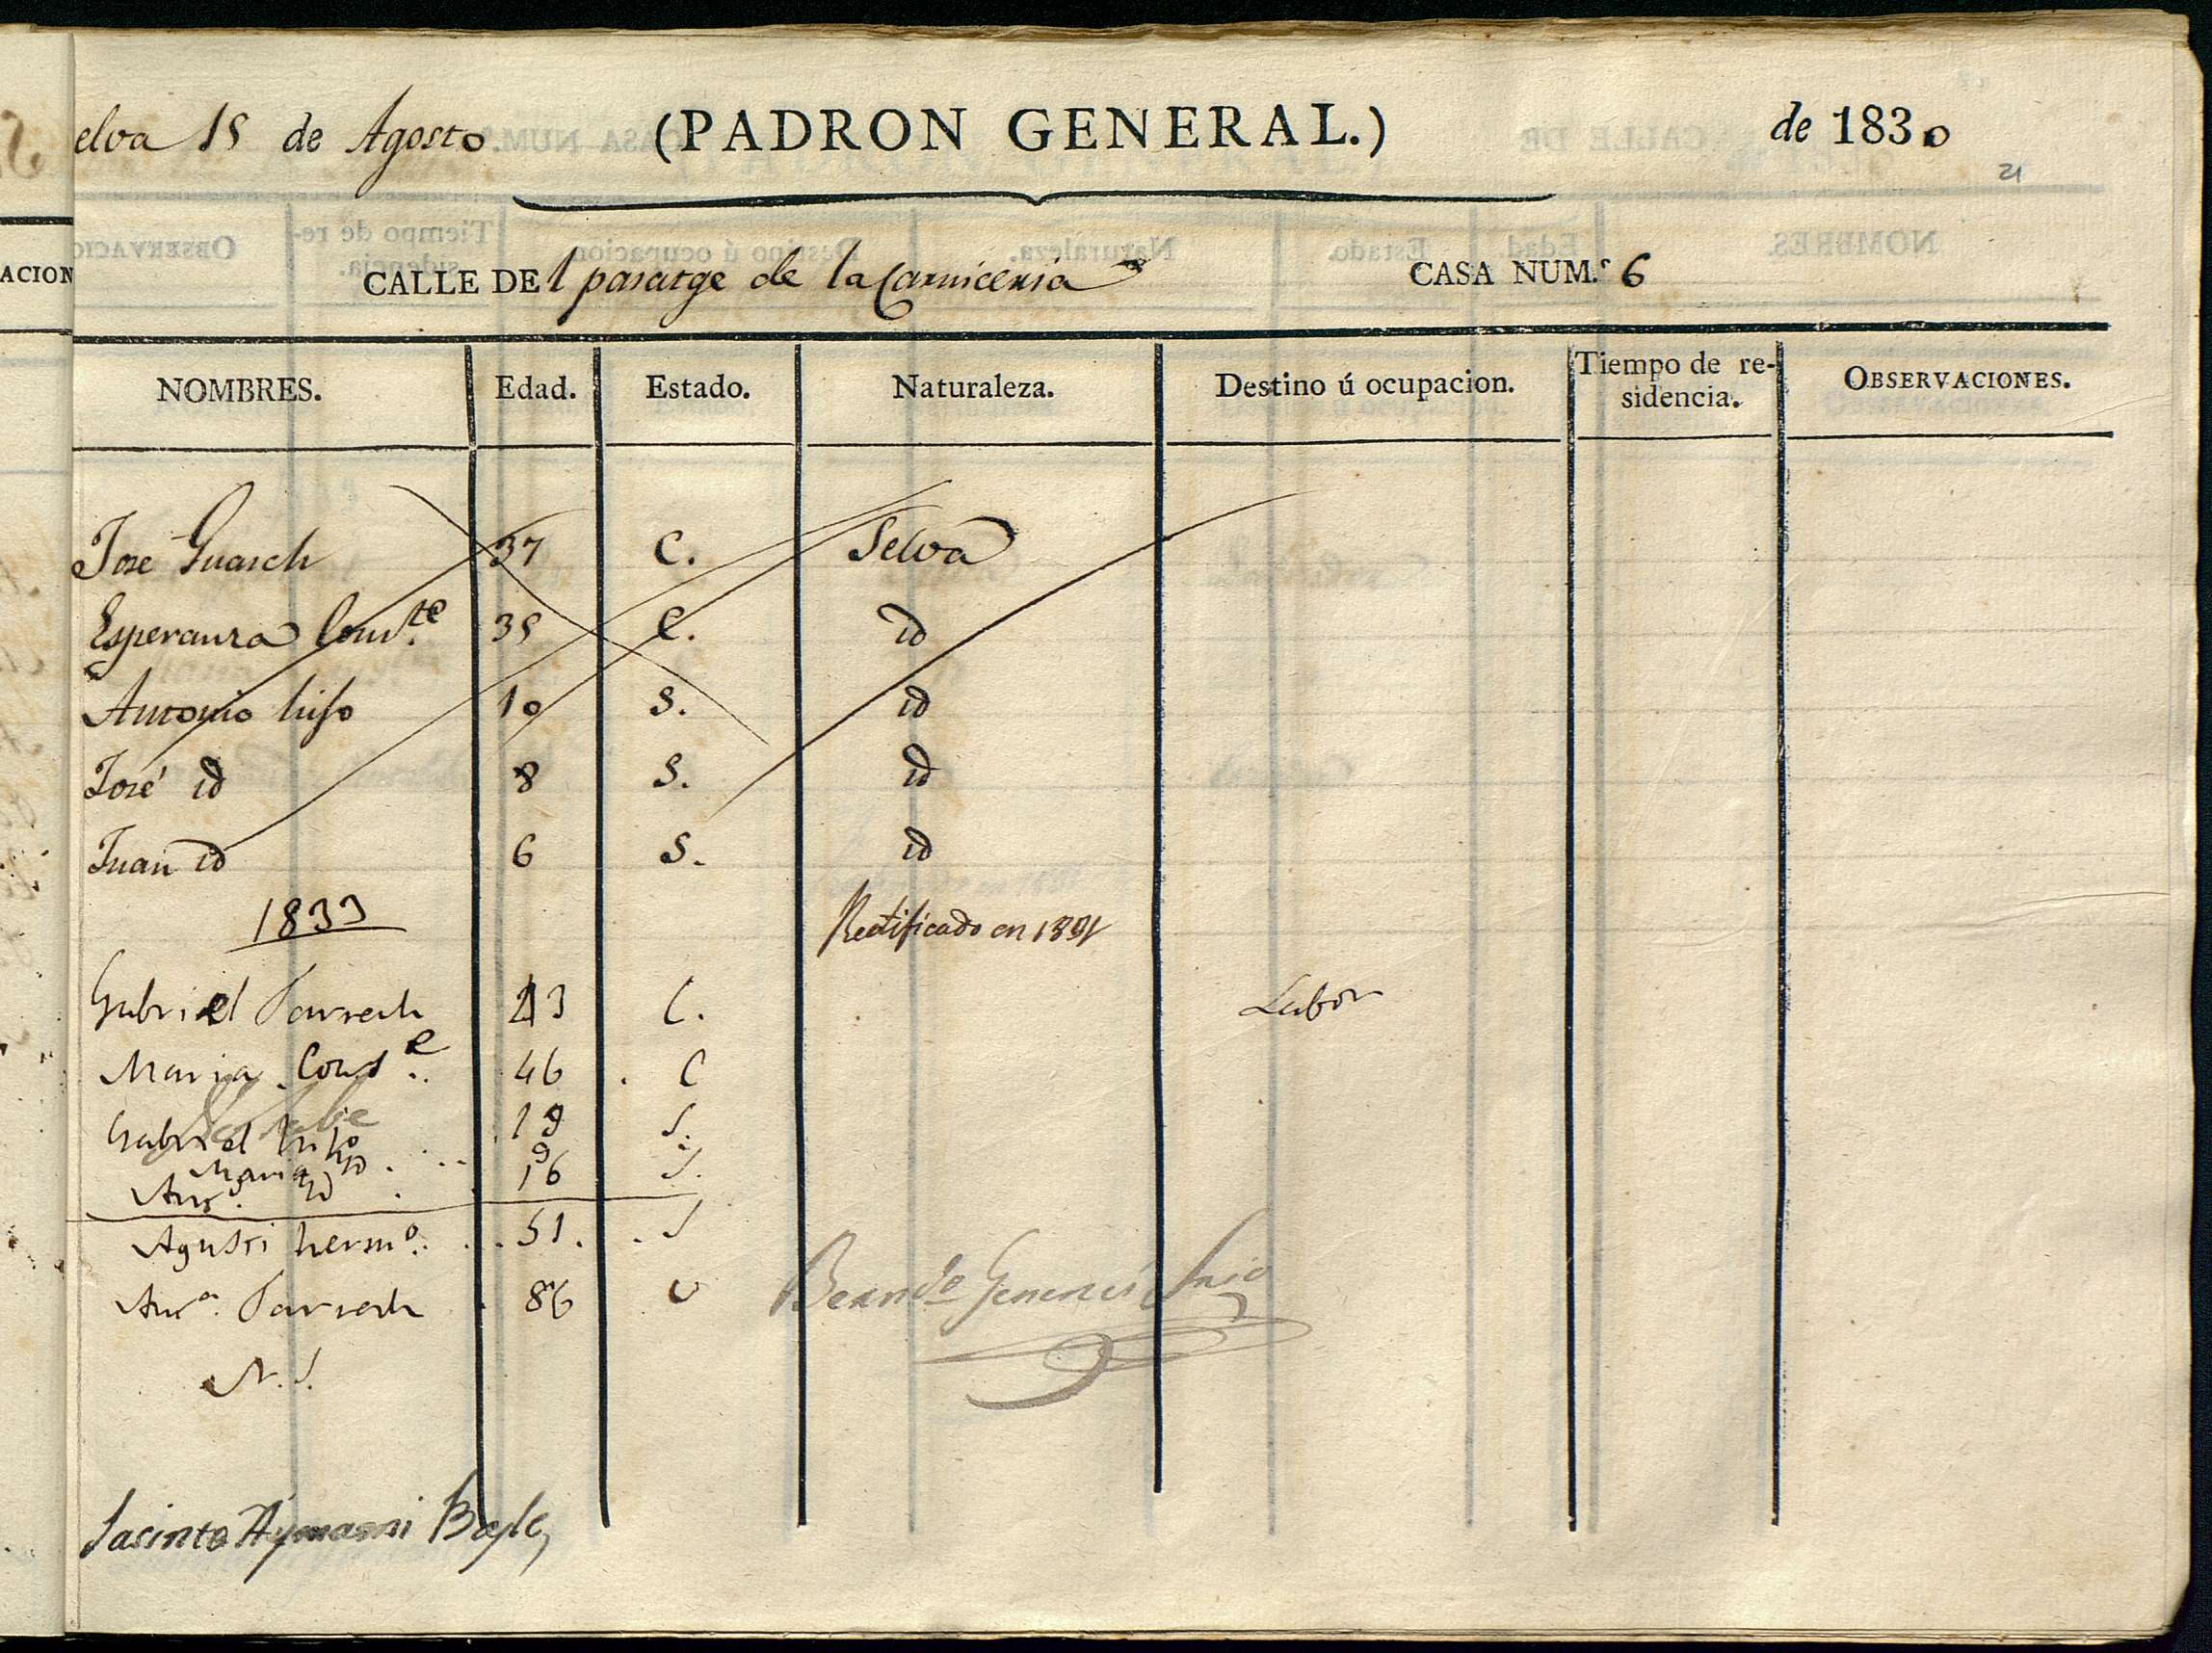 elva 15 de Agosto (PADRON GENERAL.) de 1830
21
ACION CALLE DEl pasatge de la Carniceria CASA NUM.º 6
NOMBRES. Edad. Estado. Naturaleza. Destino ú ocupacion. Tiempo de re-sidencia. OBSERVACIONES.
Jose Guasch 37 C. Selva
Esperanza Cons.te 35 C. id
Antonio hijo 10 S. id
José id 8 S. id
Juan id 6 S. id
1833 Rectificado en 1831
Gabriel C. Labor
Maria Cons.e 46 C
Gabriel hijo 19 S.
Maria id 9 S.
Ant.ª id 16
Agusti herm.º 51. S
Ant.ª 86 V
N. S.
Jacinto Aymami Bayle